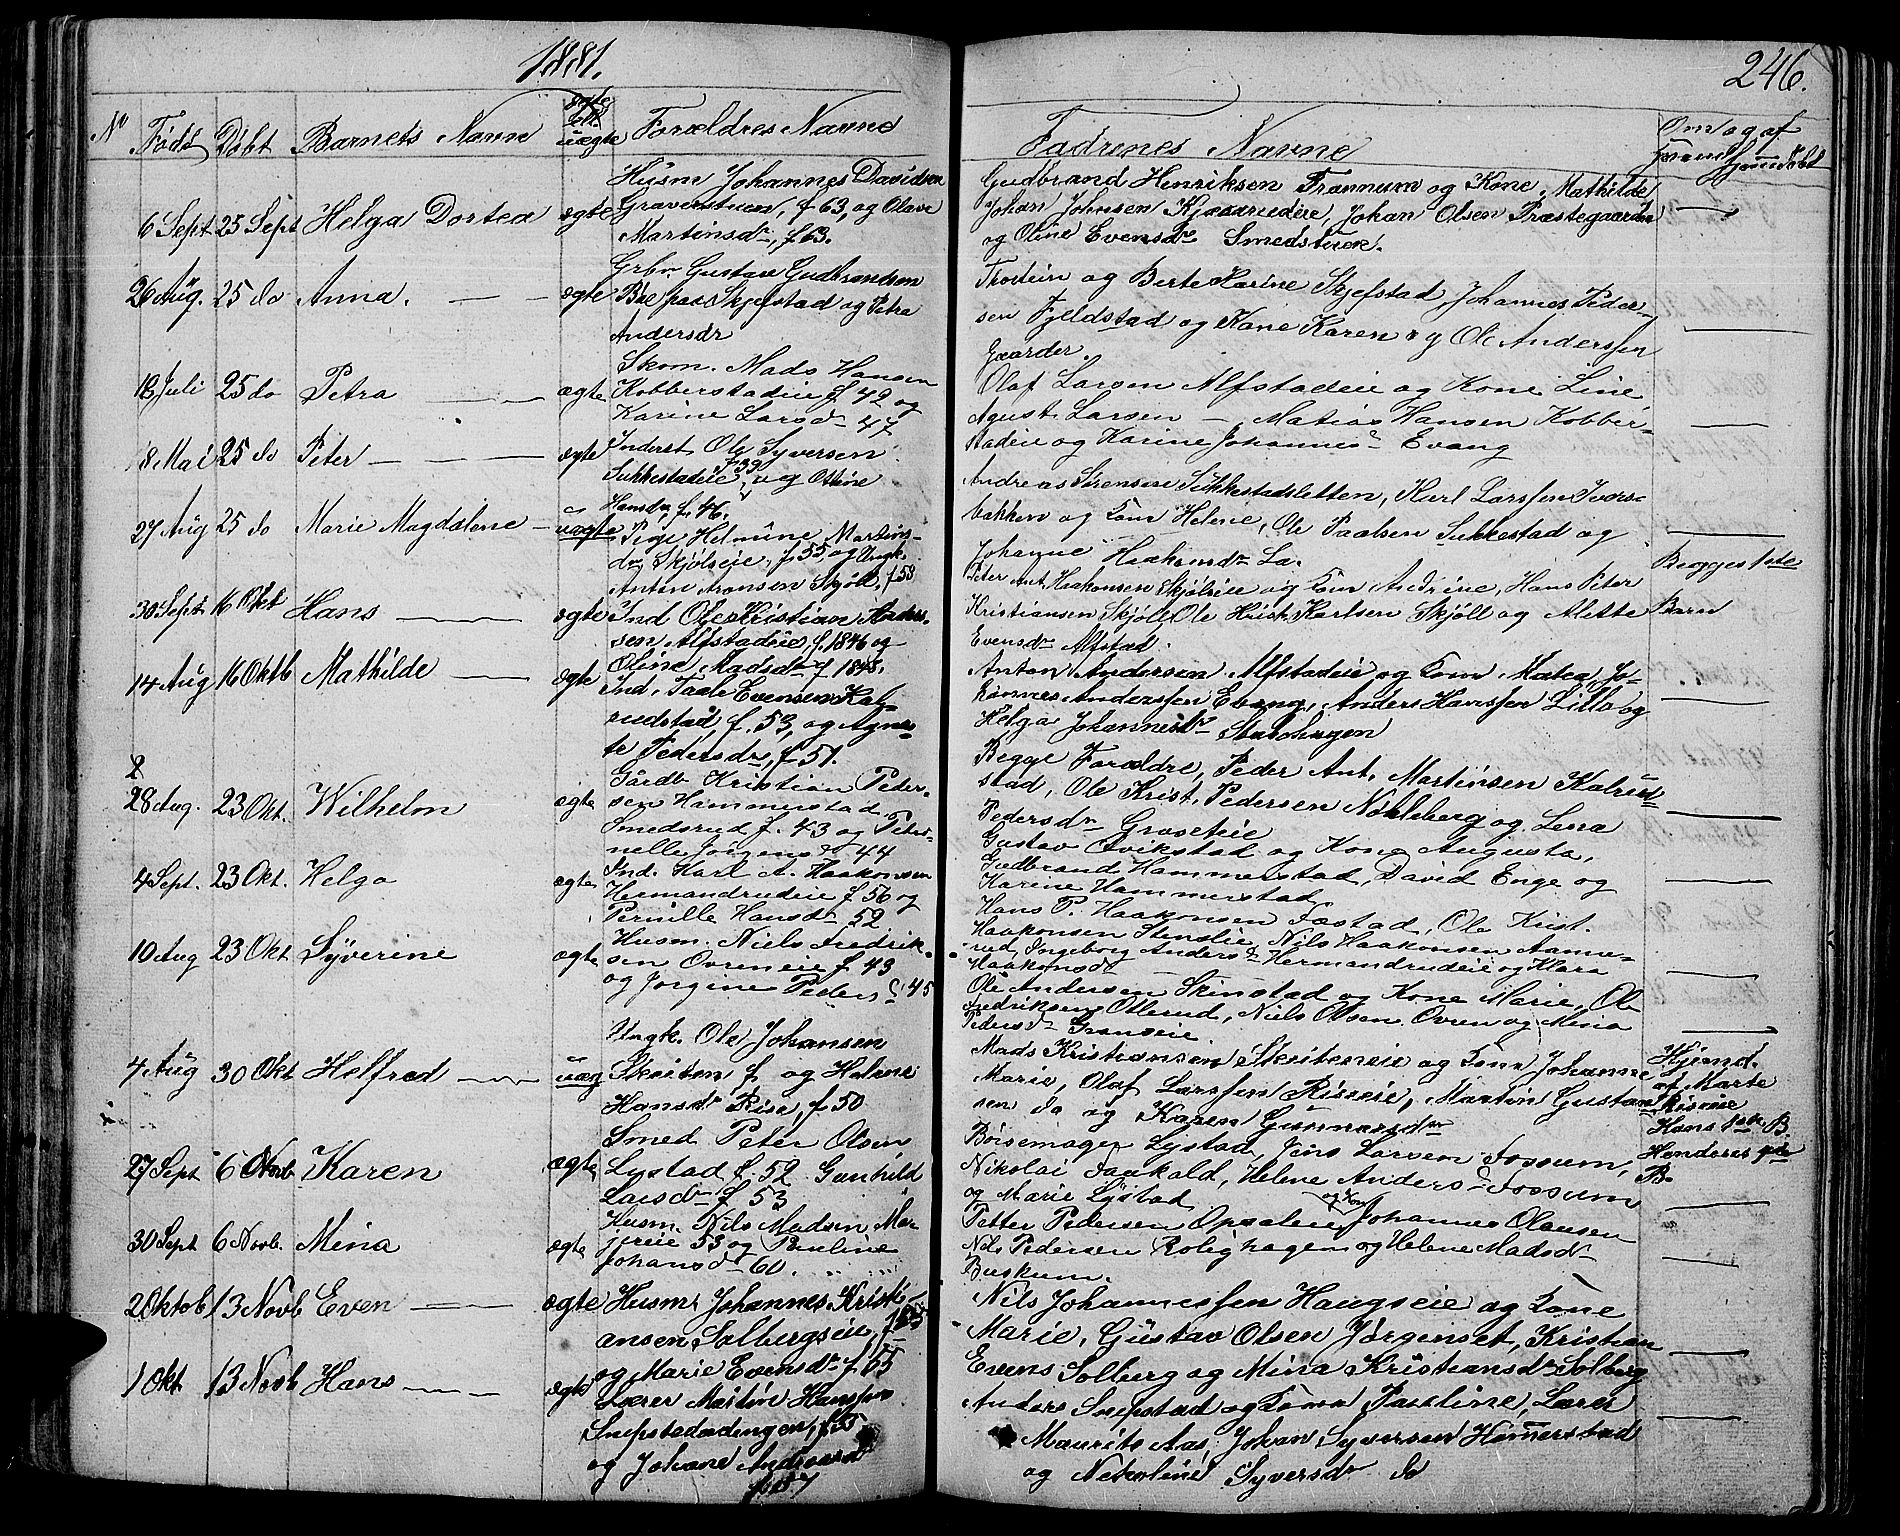 1881.
246.
No Født Døbt Barnets Navne ægte ell uægte Forældres Navne
Fadrenes Navne
Om og af
hjemdøbt
Husm Johannes Davidsen
6 Sept 25 Sept Helga Dortea ægte Graverstuen, f 63, og Olave
Martinsdr, f 63.
Gudbrand Henriksen Framnum og Kone Mathilde
Johan Johnsen Johan Olsen Præstegaarden
og Oline Evensdr Smedstuen.
Grbr Gustav Gudbrandsen
26 Aug. 25 do Anna. ægte Bøe paa Skjefstad og Petra
Andersdr
Trodein og Berte Karine Skjefstad Johannes Peder-
sen Fjeldstad og Kone Karen og Ole Anderssen
Gaarder.
Skom. Mads Hansen
18 Juli 25 do Petra ægte Kobberstadeie f 42 og
Karine Larsdr 47
Olaf Larsen Alfstadeie og Kone Line
Agust Larsen — Matias Hansen Kobber-
stadeie og Karine Johannesdr Evang
18 Mai 25 do Peter ægte Inderst Ole Syversen
Sukkestadeie f 39 og Otline
Hansdr, f. 46.
Andreas Sørensen Sukkestadsletten, Karl Larssen Ivers-
bakken og Kone Helene, Ole Paalsen Sukkestad og
Johanne Haakensdr
27 Aug 25 do Marie Magdalene uægte Pige Helmine Martins-
dr Skjølseie, f. 55 og Ungk.
Anton Aronsen Skjøll, f 58
Peter Ant. Haakonsen Skjølseie og Kone Andrine, Hans Peter
Kristiansen Skjøll Ole Krist. Karlsen Skjøll og Alette
Evensdr Alfstad.
Begges 1ste
Barn
30 Sept 16 Okt Hans ægte Ind Ole Kristian Ander-
sen Alfstadeie, f. 1846 og
Oline Madsdr f 1848.
Anton Andersen Alfstadeie og Kone Matea, Jo-
hannes Anderssen Evang, Anders Hanssen Lilla og
Helga Johannesdr
14 Aug 16 Oktb Mathilde ægte Ind. Paale Evensen Kal-
rudstad f. 53, og Agne-
te Pedersdr, f 51.
Begge Forældre, Peder Ant. Martinsen Kalrud-
stad, Ole Krist. Pedersen Nøkleberg og Lena
Pedersdr Graseteie
28 Aug. 23 Okt. Wilhelm ægte Gårdb Kristian Peder-
sen Hammerstad
Smedsrud f. 43 og Peter-
nelle Jørgensdr 44
Gustav Kvikstad og Kone Augusta,
Gudbrand Hammerstad, David Enge og
Karine Hammerstad
4 Sept. 23 Okt. Helga ægte Ind. Karl A. Haakonsen
Hermandrudeie f 56 og
Pernille Hansdr 52
Hans P. Haakonsen Fostad, Ole Krist.
Haakonsen Stenslie, Nils Haakonsen Aamu-
rud, Ingeborg Andersdr Hermandrudeie og Klara
Haakonsdr
10 Aug 23 Okt Syverine ægte Husm. Niels Fredrik-
sen Ovreneie f. 43
og Jorgine Pedersdr 45
Ole Andersen Skinstad og Kone Marie, Ole
Fredriksen Oterud, Niels Olsen Ovren og Mina
Pedersdr Granseie.
Ungk. Ole Johansen
4 Aug 30 Okt Helfred uæg Skreiten f. og Helene
Hansdr Rise, f 50
Mads Kristiansen Skreteneie og Kone Johanne
Marie, Olaf Larssen Riseeie, Martin Gustav-
sen do og Karen Gunnarsdr
Hjemd.
af Marte
Riseeie
Hans 1ste B.
Hendes
B.
Smed Peter Olsen
27 Sept 6 Novb Karen ægte Lystad f. 52 Gunhild
Larsdr f 53
Lystad, Jens Larsen Fossum,
Nikolai Faukald, Helene Andersdr Fossum
og Marie Lystad
30 Sept 6 Novb. Mina ægte Husm. Nils Madsen Mæ-
jereie 53 og Pauline
Johansdr 60.
Petter Pedersen Opsaleie og Kone Johannes Olausen
Nils Pedersen Rolighagen og Helene Madsdr
Buskum.
2 Oktob 13 Novb Even ægte Husm. Johannes Kristi-
ansen Solbergseie, f 55
og Marie Evensdr f 55
Nils Johannessen Haugseie og Kone
Marie, Gustav Olsen Jørgenset, Kristian
Evens Solberg og Mina Kristiansdr Solberg
1 Okt 13 Novb Hans ægte Lærer Martin Hanssen
f 55
og Johane
f 57
Anders Snepstad og Kone Pauline, Lærer
Maurits Aas, Johan Syversen Hammerstad
og Nekoline Syversdr do